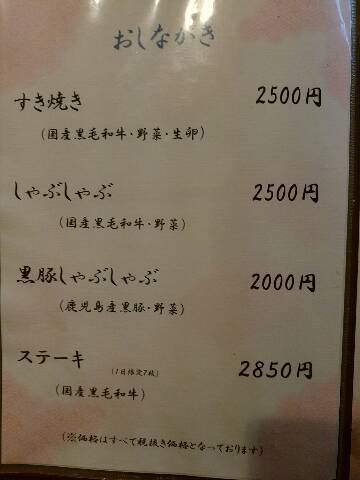 おしながき
すき焼き 2500円
(国産黒毛和牛・野菜・生卵)
しゃぶしゃぶ 2500円
(国産黒毛和牛・野菜)
黒豚しゃぶしゃぶ 2000円
(鹿児島産黒豚・野菜)
ステーキ (1日限定7枚) 2850円
(国産黒毛和牛)
(※価格はすべて税抜き価格となっております)